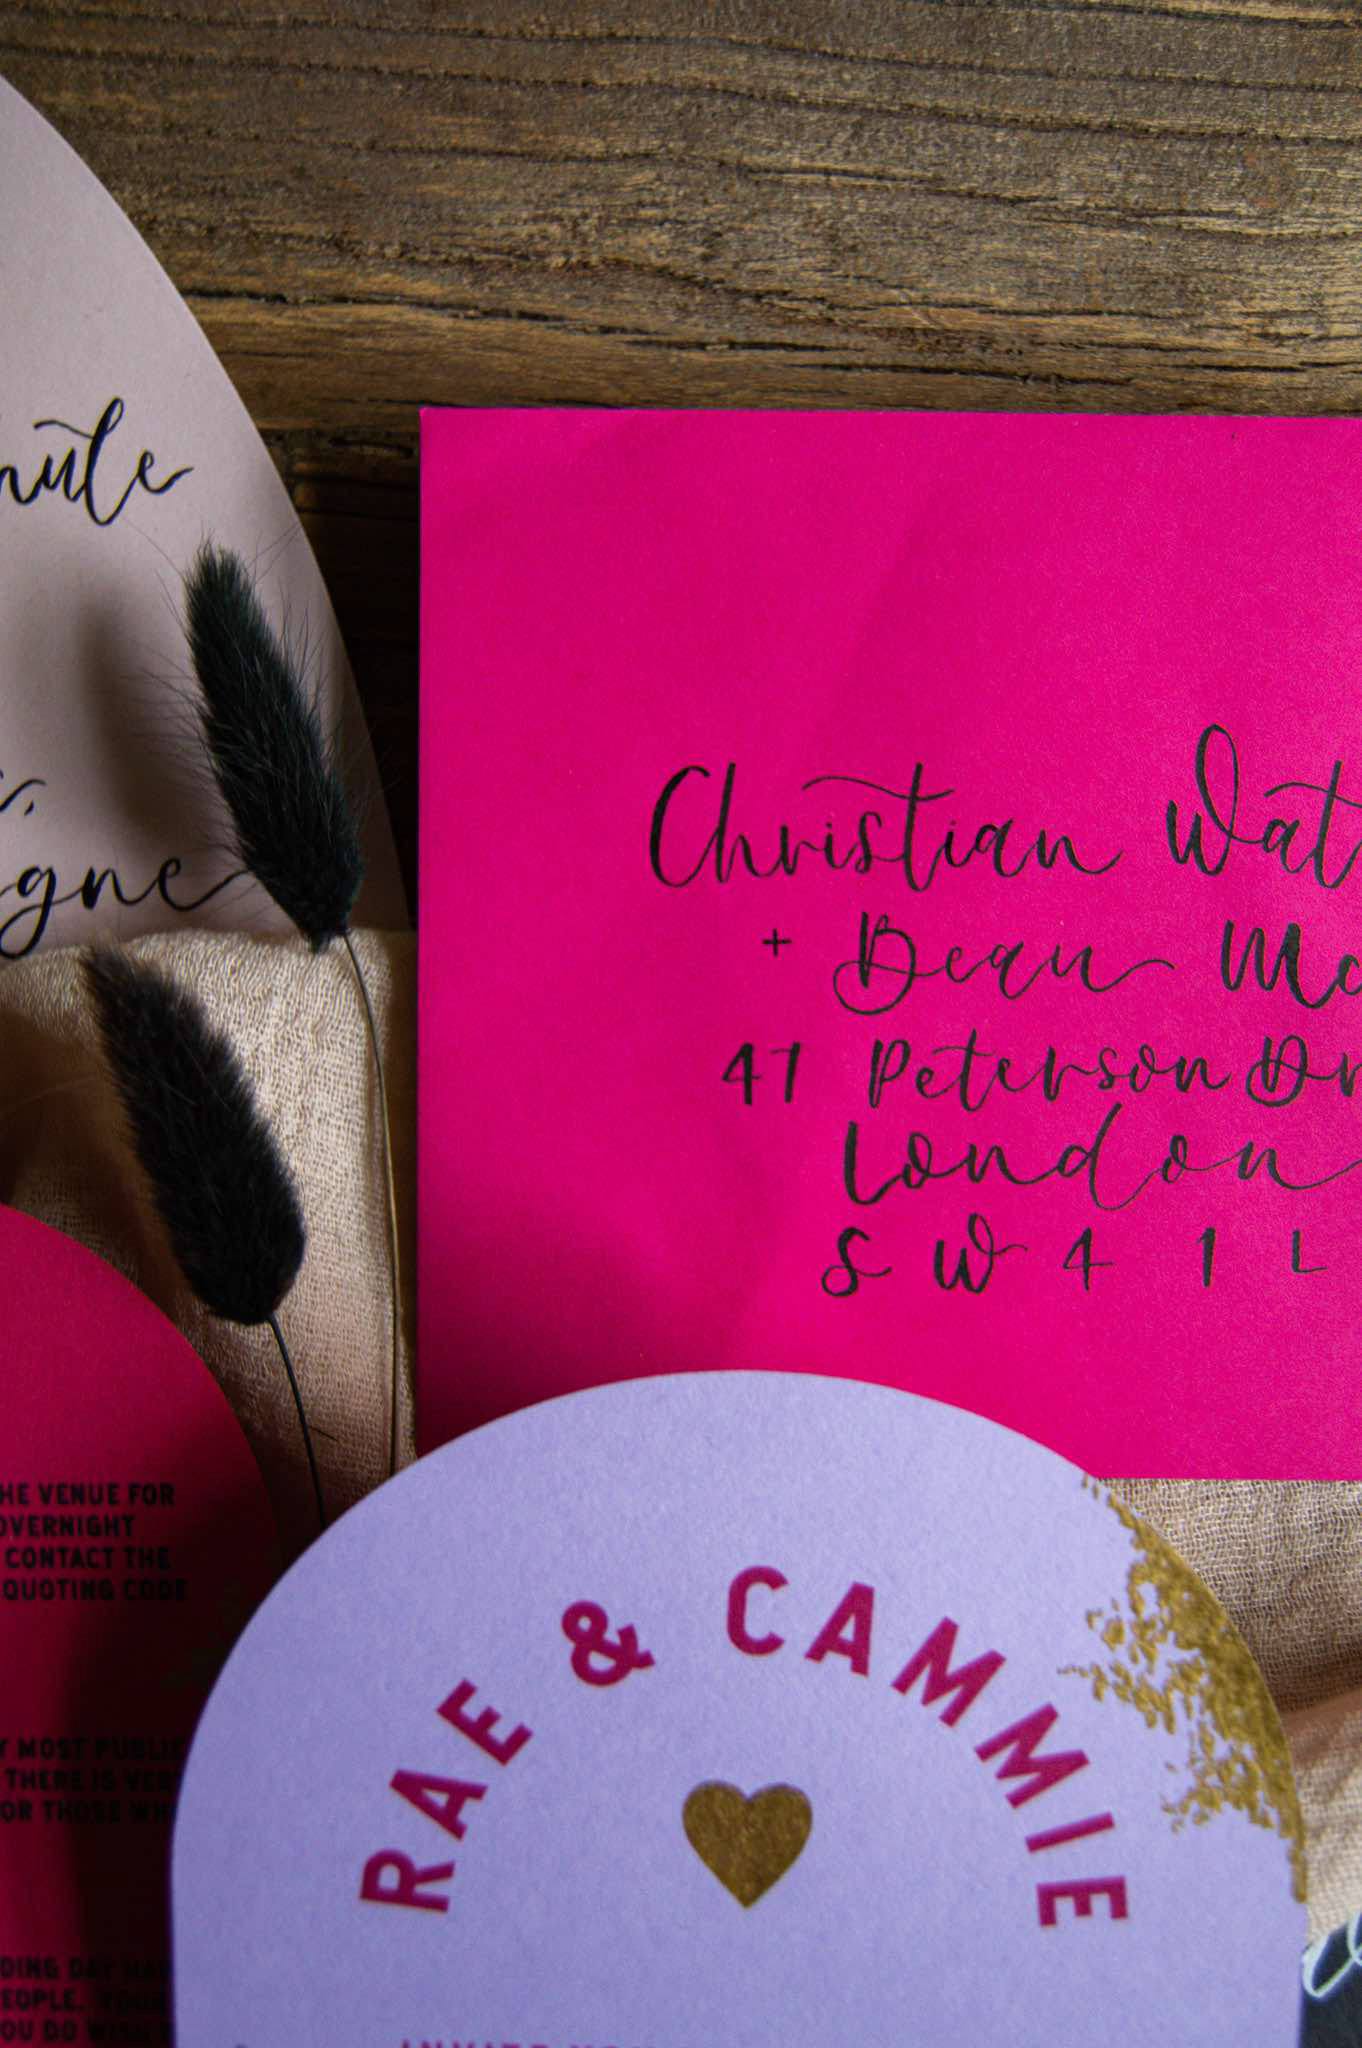 Christian
+ Dean
47 Peterson
London
SW4 1L
HE VENUE FOR
OVERNIGHT
CONTACT THE
QUOTING CODE
MOST PUBLI
THERE IS VER
OR THOSE WH
DING DAY HA
EOPLE. YOU
OU DO WISH
RAE & CAMMIE